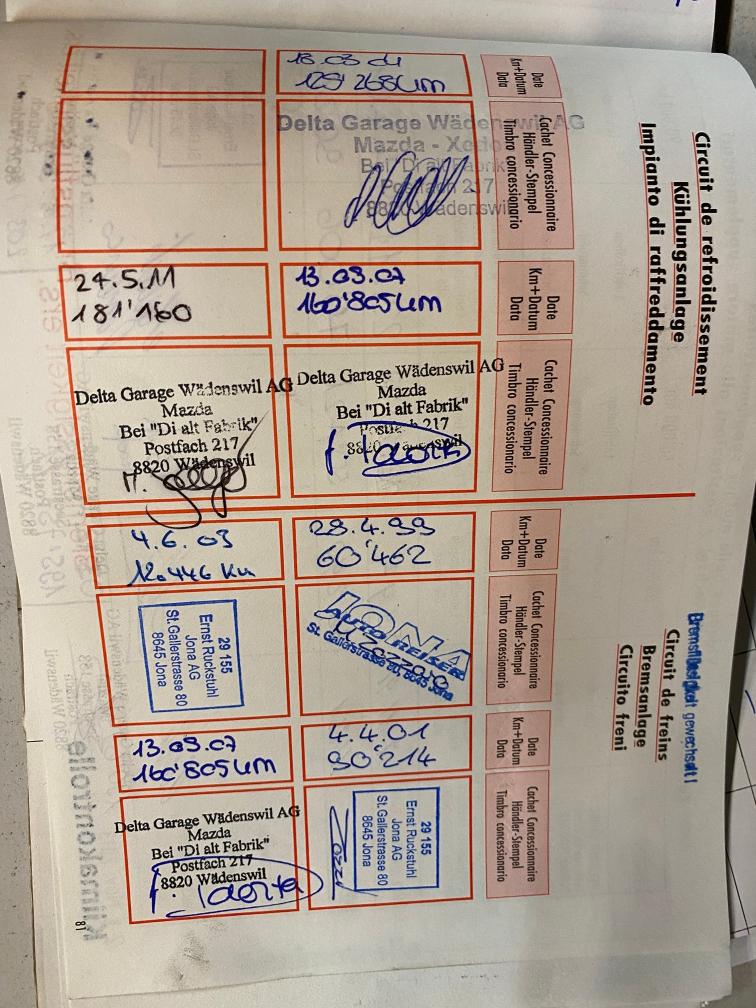 Circuit de refroidissement
Kühlungsanlage
Impianto di raffreddamento
Date
Km+Datum
Data
18.03.04
129'268km
Cachet Concessionnaire
Händler-Stempel
Timbro concessionario
Delta Garage Wädenswil AG
Mazda -
Bei "Di alt Fabrik"
Postfach 217
8820 Wädenswil
Date
Km+Datum
Data
13.09.07
160'805km
24.5.11
181'160
Cachet Concessionnaire
Händler-Stempel
Timbro concessionario
Delta Garage Wädenswil AG
Mazda
Bei "Di alt Fabrik"
Postfach 217
8820 Wädenswil
Delta Garage Wädenswil AG
Mazda
Bei "Di alt Fabrik"
Postfach 217
8820 Wädenswil
Bremsflüssigkeit gewechselt!
Circuit de freins
Bremsanlage
Circuito freni
Date
Km+Datum
Data
28.4.99
60'462
4.6.03
Cachet Concessionnaire
Händler-Stempel
Timbro concessionario
JONA
AUTO
St. Gallerstrasse 8645 Jona
29 155
Ernst Ruckstuhl
Jona AG
St.Gallerstrasse 80
8645 Jona
Date
Km+Datum
Data
4.4.01
90'214
13.09.07
160'805km
Cachet Concessionnaire
Händler-Stempel
Timbro concessionario
29 155
Ernst Ruckstuhl
Jona AG
St.Gallerstrasse 80
8645 Jona
Delta Garage Wädenswil AG
Mazda
Bei "Di alt Fabrik"
Postfach 217
8820 Wädenswil
81